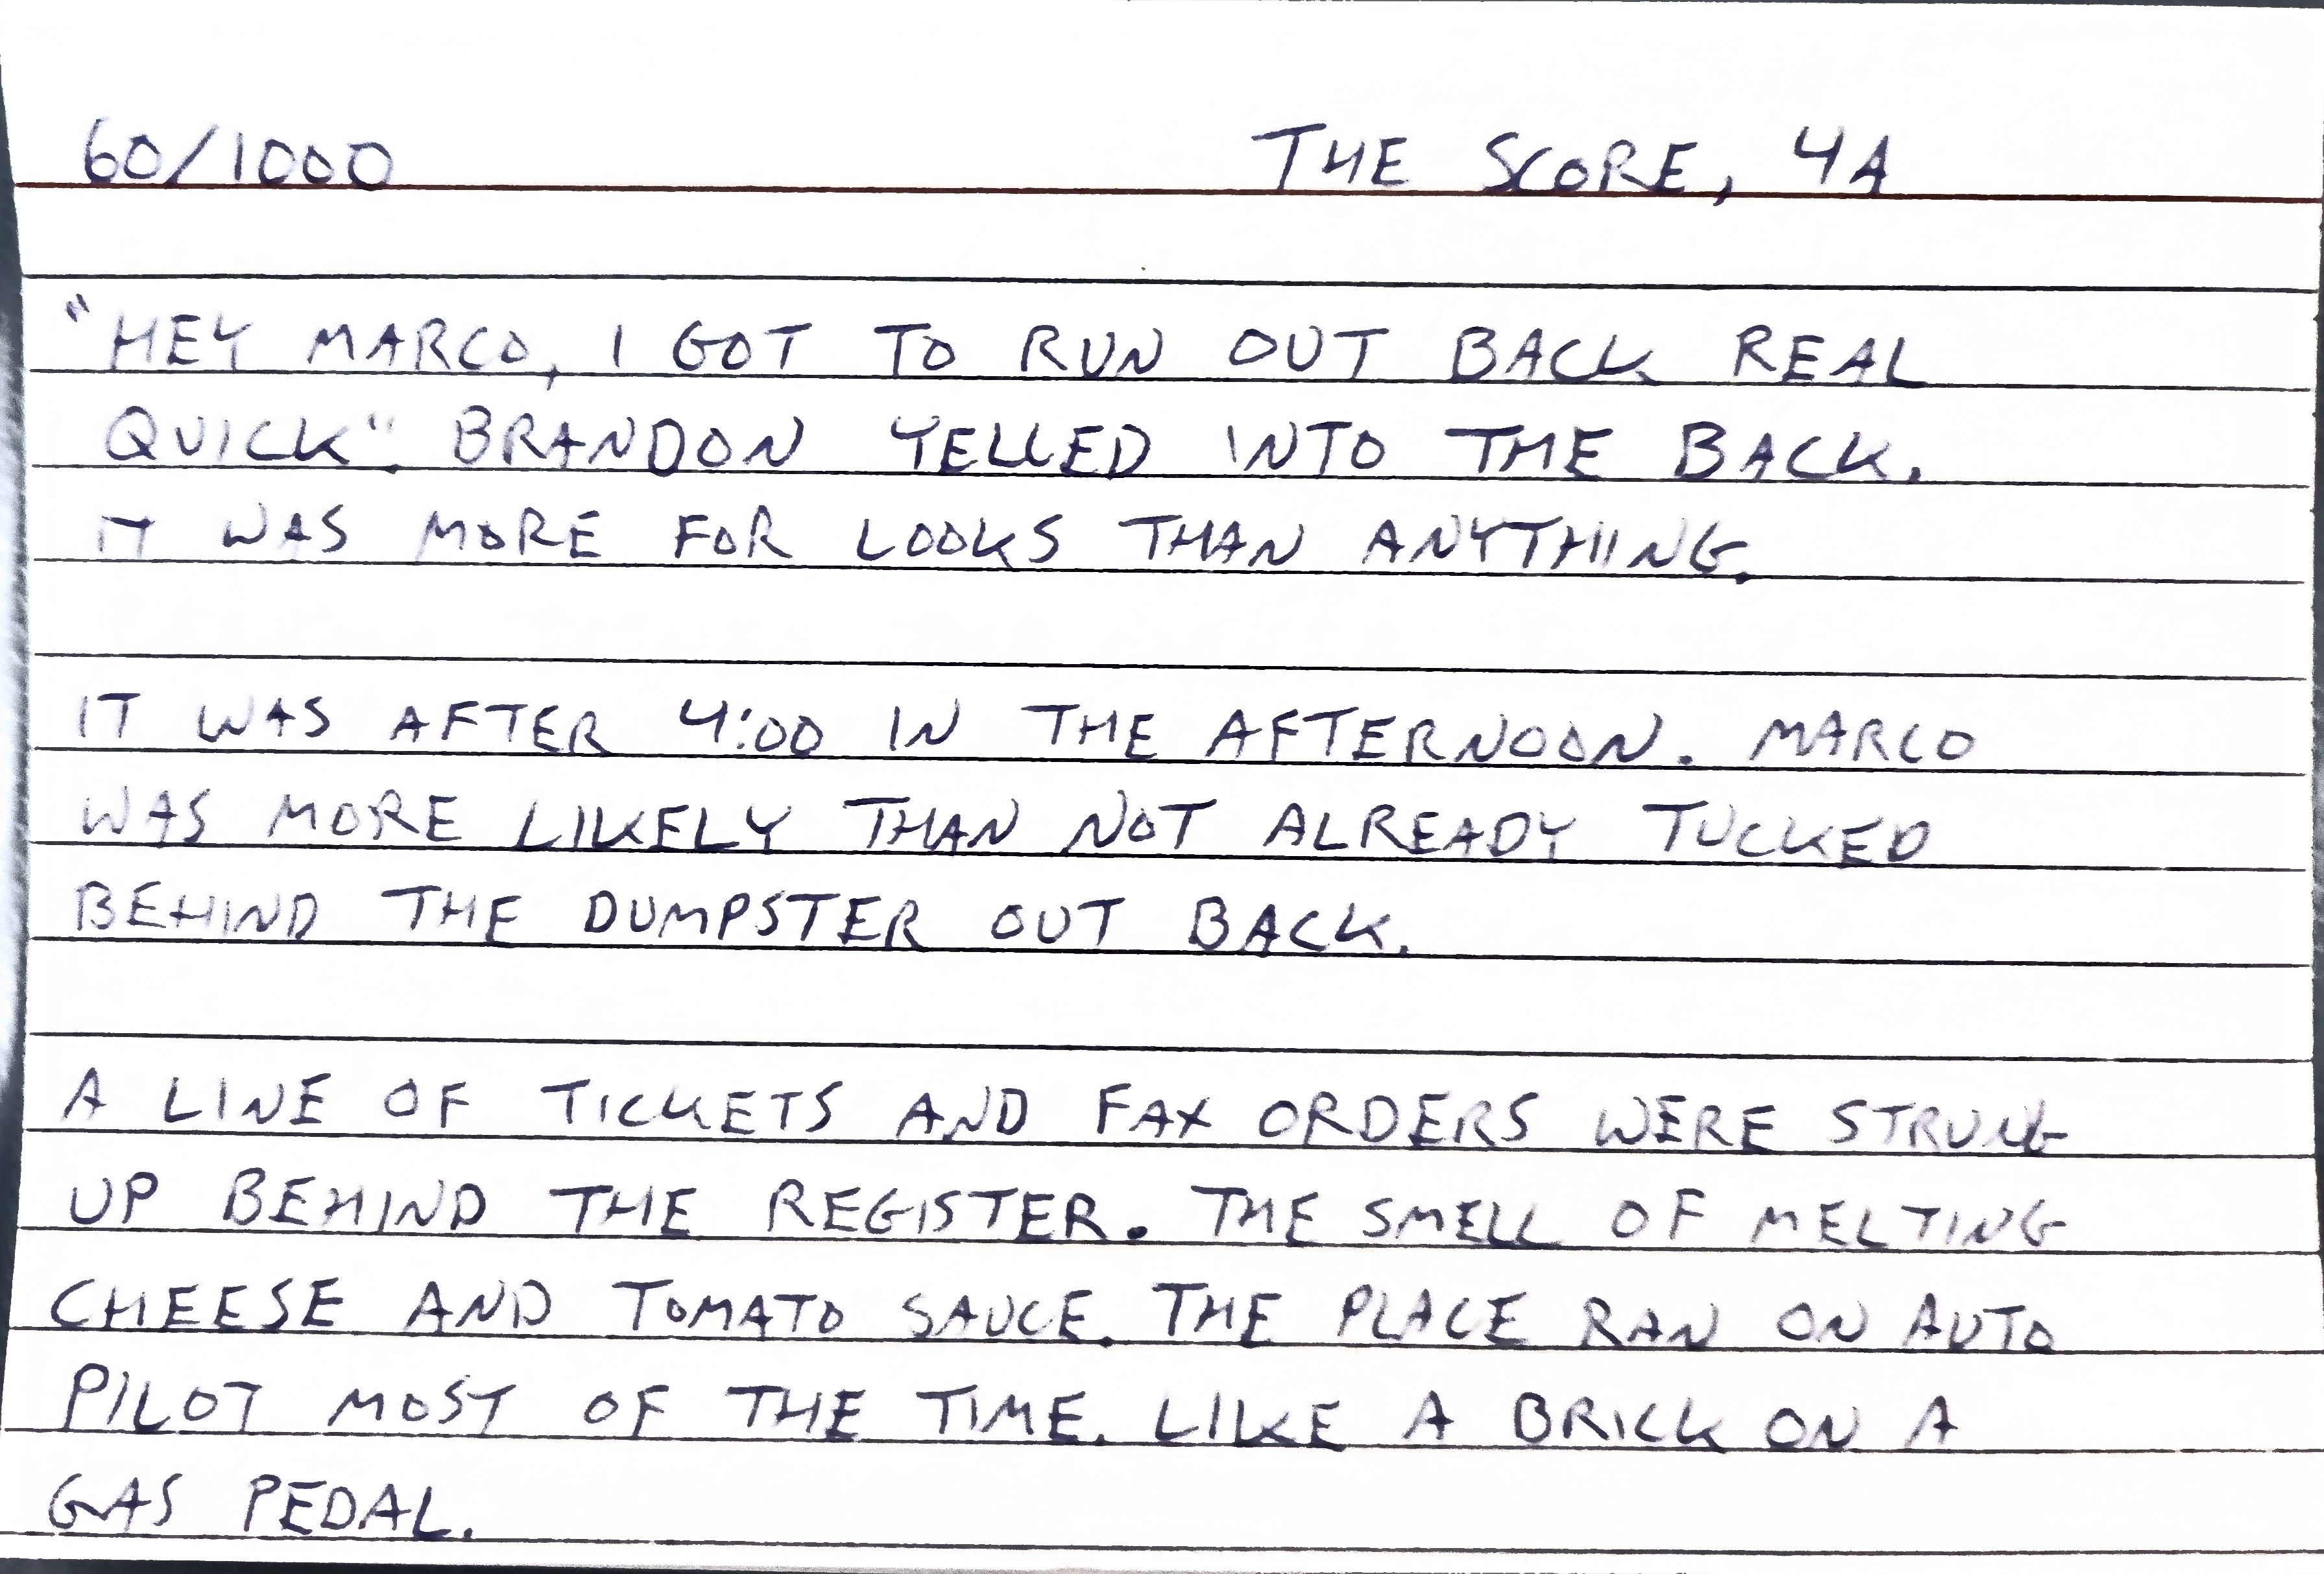 60/1000 THE SCORE, 4A
"HEY MARCO, I GOT TO RUN OUT BACK REAL
QUICK". BRANDON YELLED INTO THE BACK.
IT WAS MORE FOR LOOKS THAN ANYTHING.
IT WAS AFTER 4:00 IN THE AFTERNOON. MARCO
WAS MORE LIKELY THAN NOT ALREADY TUCKED
BEHIND THE DUMPSTER OUT BACK.
A LINE OF TICKETS AND FAX ORDERS WERE STRUNG
UP BEHIND THE REGISTER. THE SMELL OF MELTING
CHEESE AND TOMATO SAUCE. THE PLACE RAN ON AUTO
PILOT MOST OF THE TIME. LIKE A BRICK ON A
GAS PEDAL.